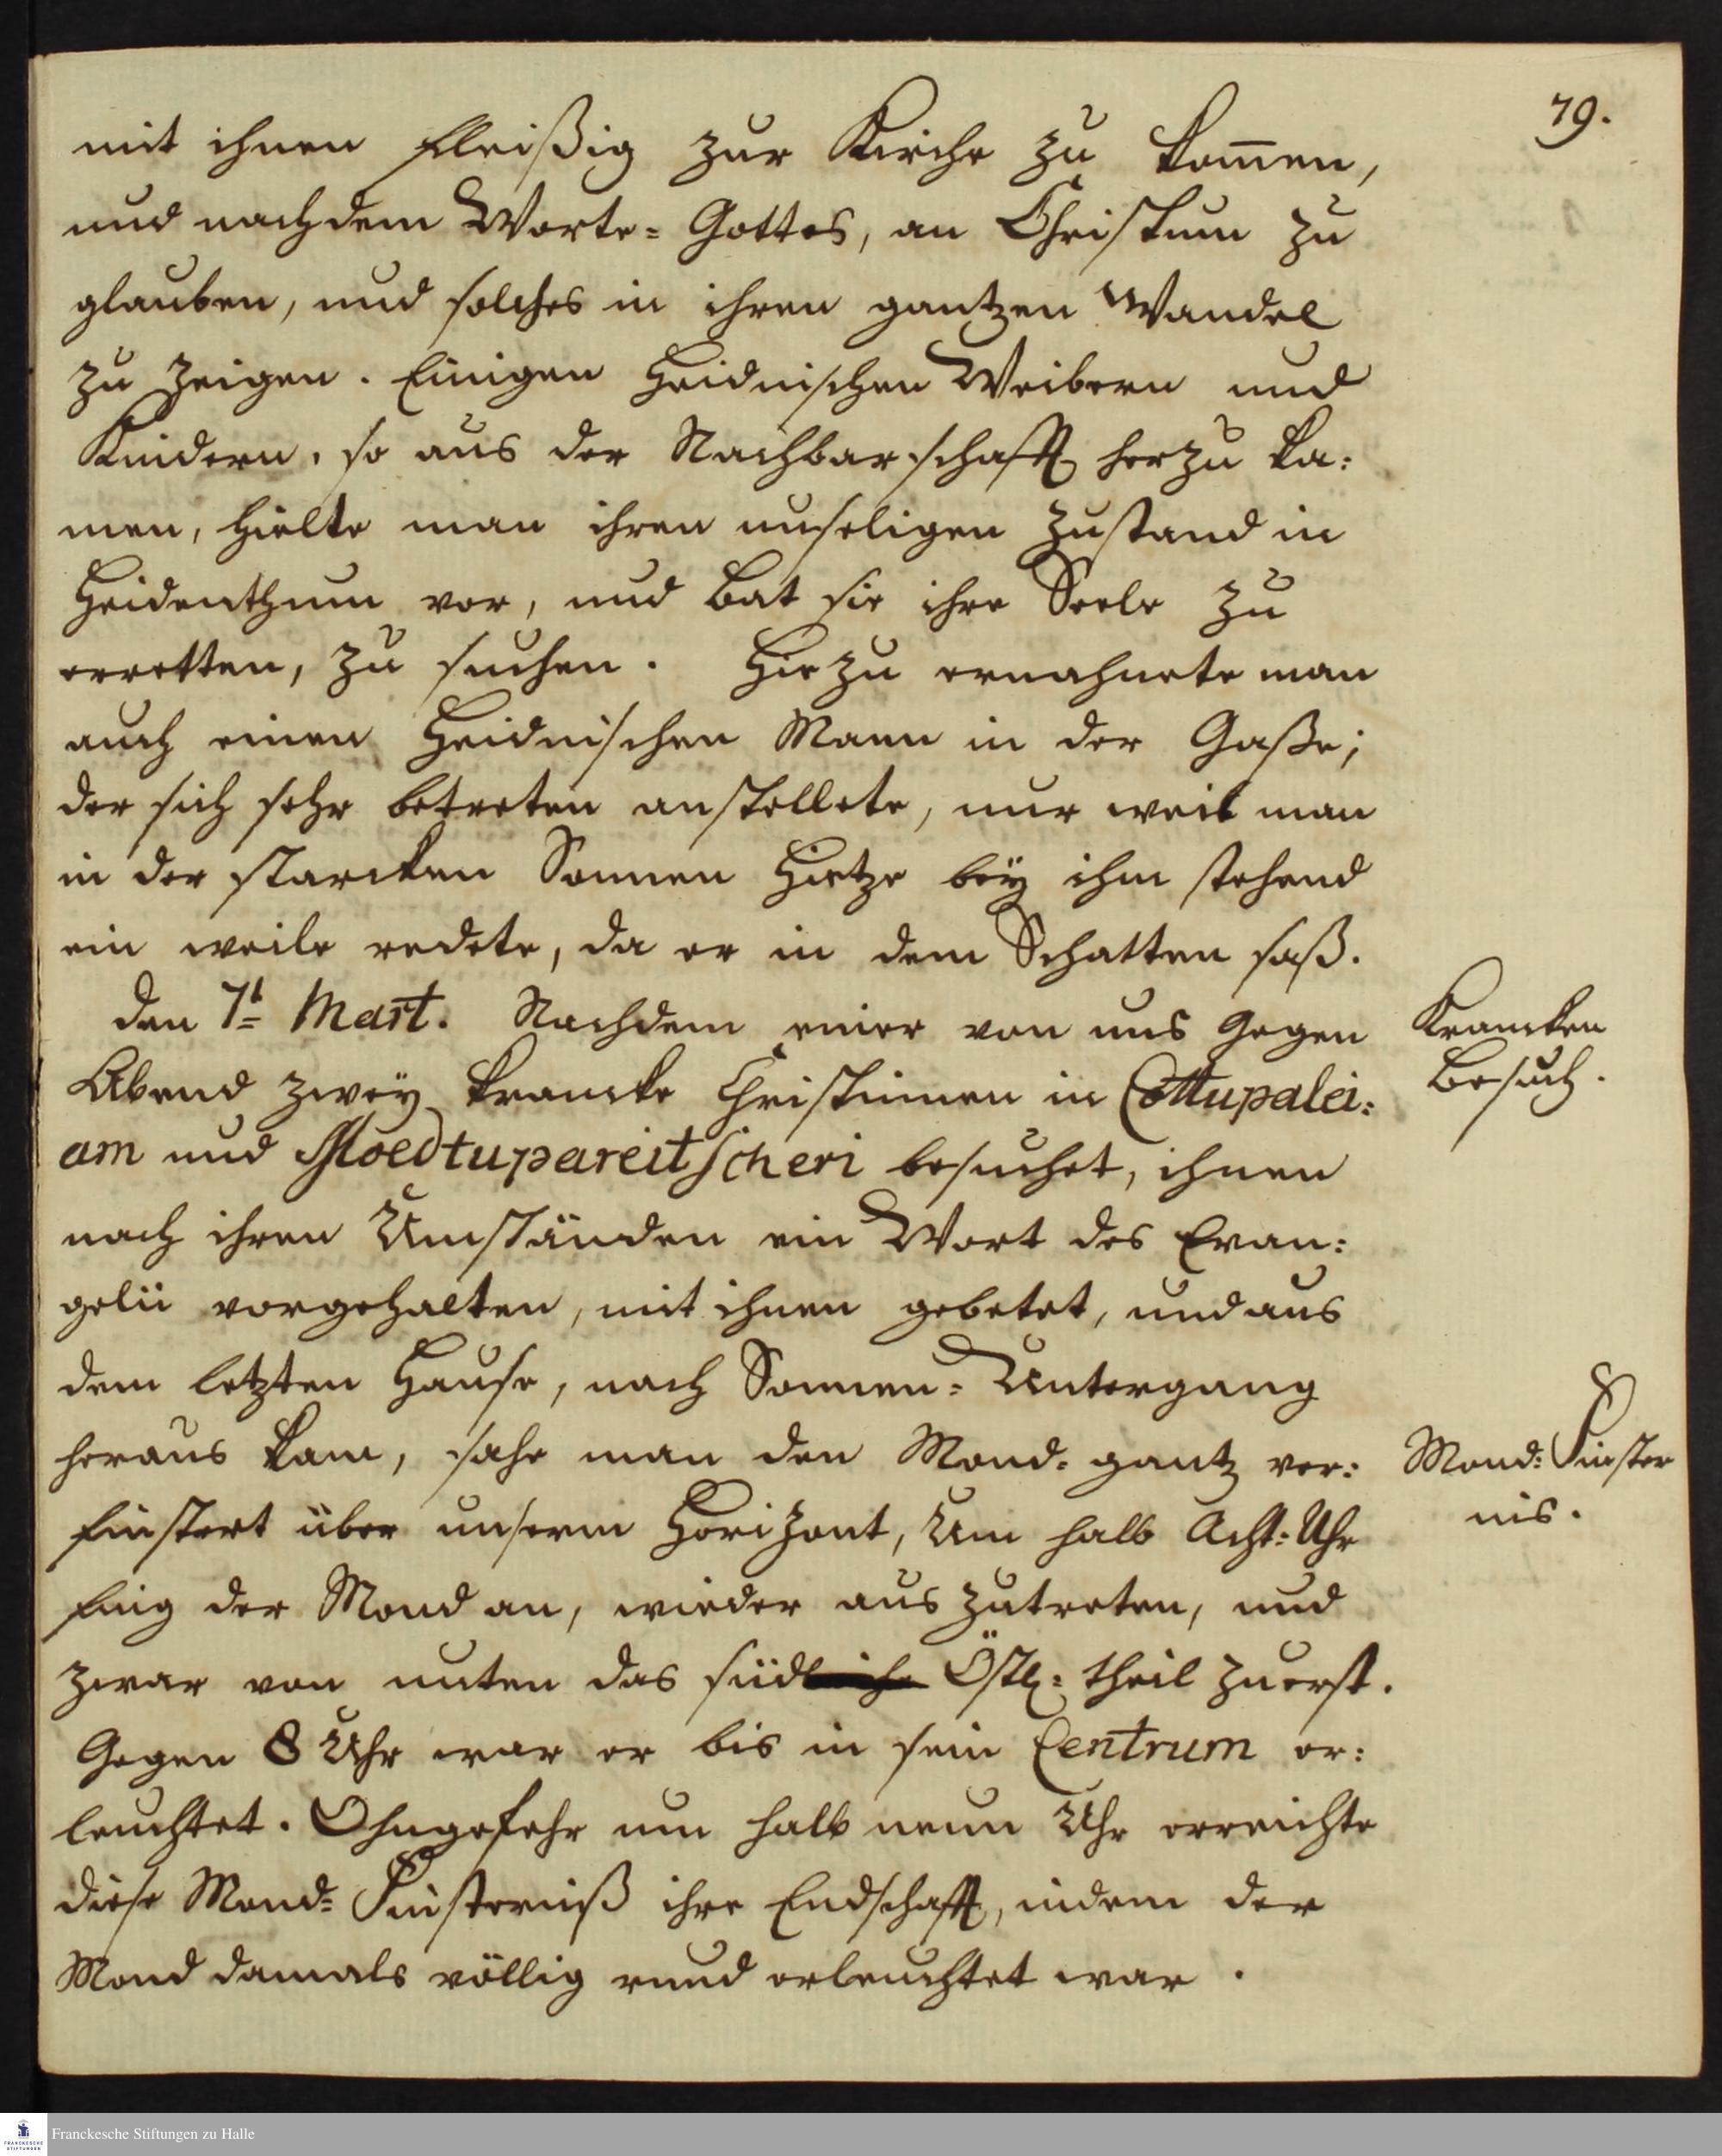 79.
mit ihnen fleißig zur Kirche zu kom̄en,
und nach dem Worte=Gottes, an Christum zu
glauben, und solches in ihren gantzen Wandel
zu zeigen. Einigen Heidnischen Weibern und
Kindern, so aus der Nachbarschafft herzu ka:
men, hielte man ihren unseligen Zustand in
Heidenthum vor, und bat sie ihre Seele zu
erretten, zu suchen. Hiezu ermahnete man
auch einen Heidnischen Mann in der Gaße;
der sich sehr betreten anstellete, nur weil man
in der starcken Sonnen Hietze beÿ ihm stehend
ein weile redete, da er in dem Schatten saß.
den 7t Mart. Nachdem einer von uns gegen
Abend zweÿ krancke Christinnen in Cottupalei:
am und Moedtupareitscheri besuchet, ihnen
nach ihren Umständen ein Wort des Evan:
gelii vorgehalten, mit ihnen gebetet, und aus
dem letzten Hause, nach Sonnen=Untergang
heraus kam, sahe man den Mond gantz ver:
finstert über unserm Horizont, Um halb Acht=Uhr
fing der Mond an, wieder auszutreten, und
zwar von unten das süd Östl: theil zuerst.
Gegen 8 Uhr war er bis in sein Centrum er:
leuchtet. Ohngefehr um halb neun Uhr erreichte
diese Mond=Finsterniß ihre Endschafft, indem der
Mond damals völlig rund erleuchtet war.
Krancken
Besuch.
Mond=Finster
nis.
Franckesche Stiftungen zu Halle